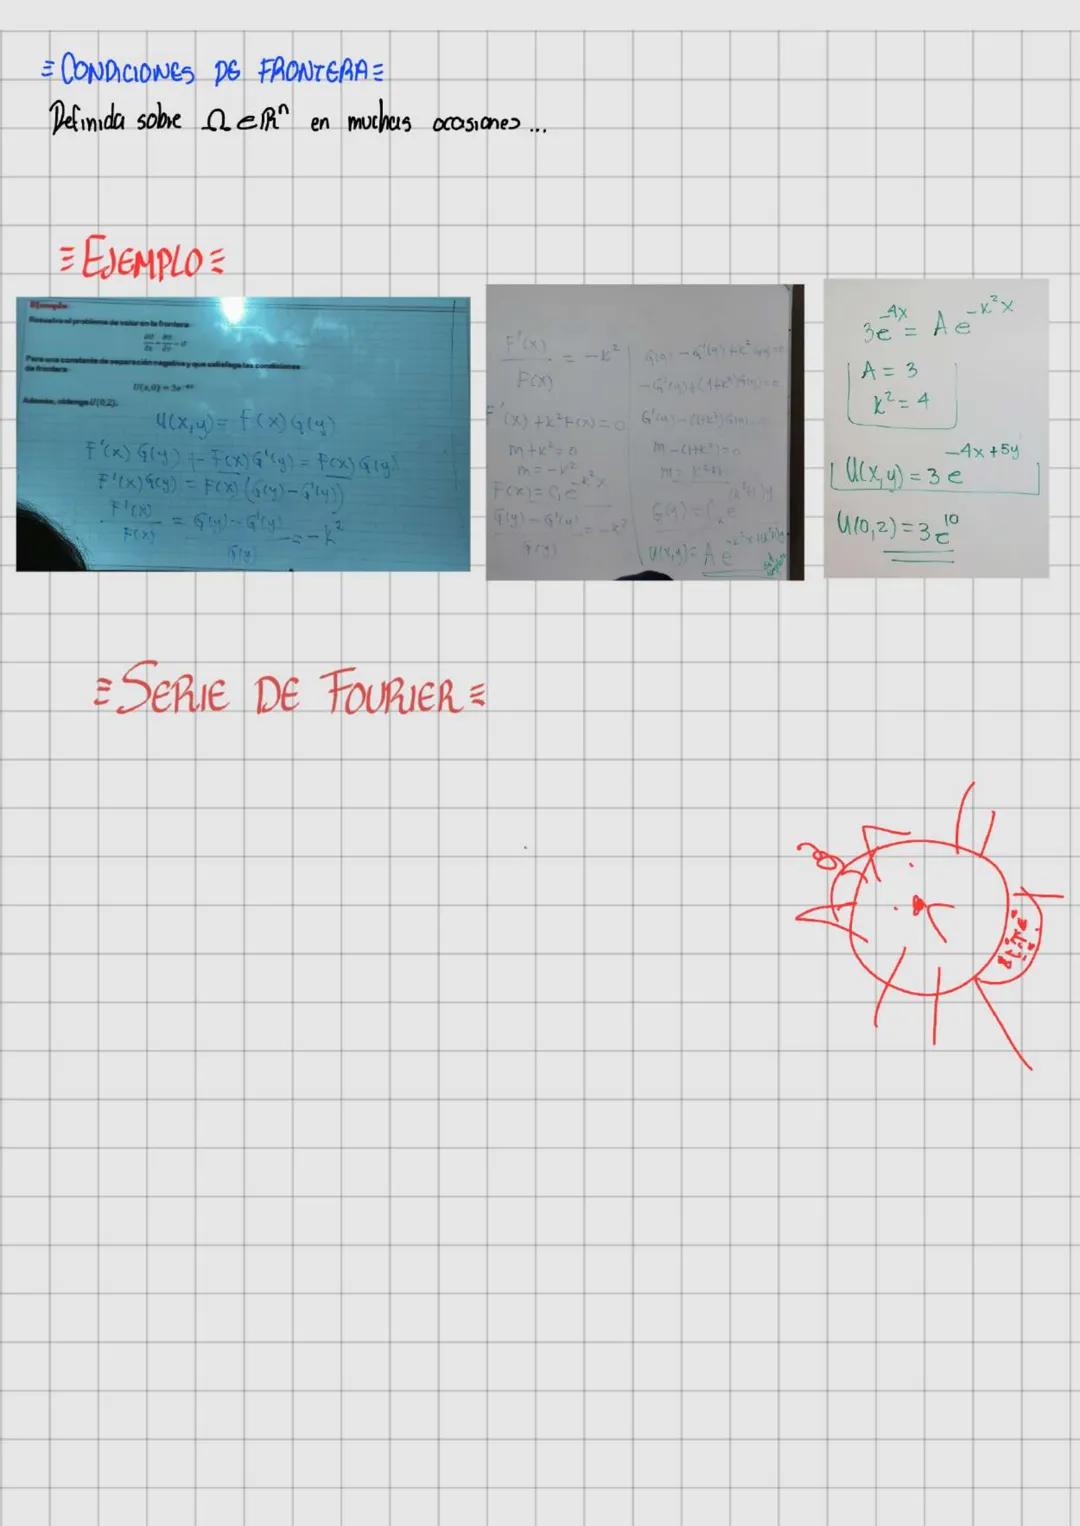 ≡ CONDICIONES DE FRONTERA ≡
Definida sobre Ω ∈ ℝⁿ en muchas ocasiones ...
≡ EJEMPLO ≡
Ejemplo
Resuelva el problema de valor en la frontera
Para una constante de separación negativa y que satisfaga las condiciones
de frontera
U(x,0) = 3e⁻⁴ˣ
Además, obtenga U(0,2).
U(x,y) = F(x) G(y)
F'(x) G(y) + F(x) G'(y) = F(x) G(y)
F'(x) G(y) = F(x) (G(y) - G'(y))
F'(x)/F(x) = (G(y) - G'(y))/G(y) = -k²
F'(x)/F(x) = -k²
F'(x) + k²F(x) = 0
m + k² = 0
m = -k²
F(x) = C₁e^(-k²x)
(G(y) - G'(y))/G(y) = -k²
G(y) - G'(y) + k² G(y) = 0
-G'(y) + (1+k²)G(y) = 0
m - (1+k²) = 0
m = k²+1
U(x,y) = A e
3e⁻⁴ˣ = A e^(-k²x)
A = 3
k² = 4
U(x,y) = 3 e^(-4x+5y)
U(0,2) = 3e¹⁰
≡ SERIE DE FOURIER ≡